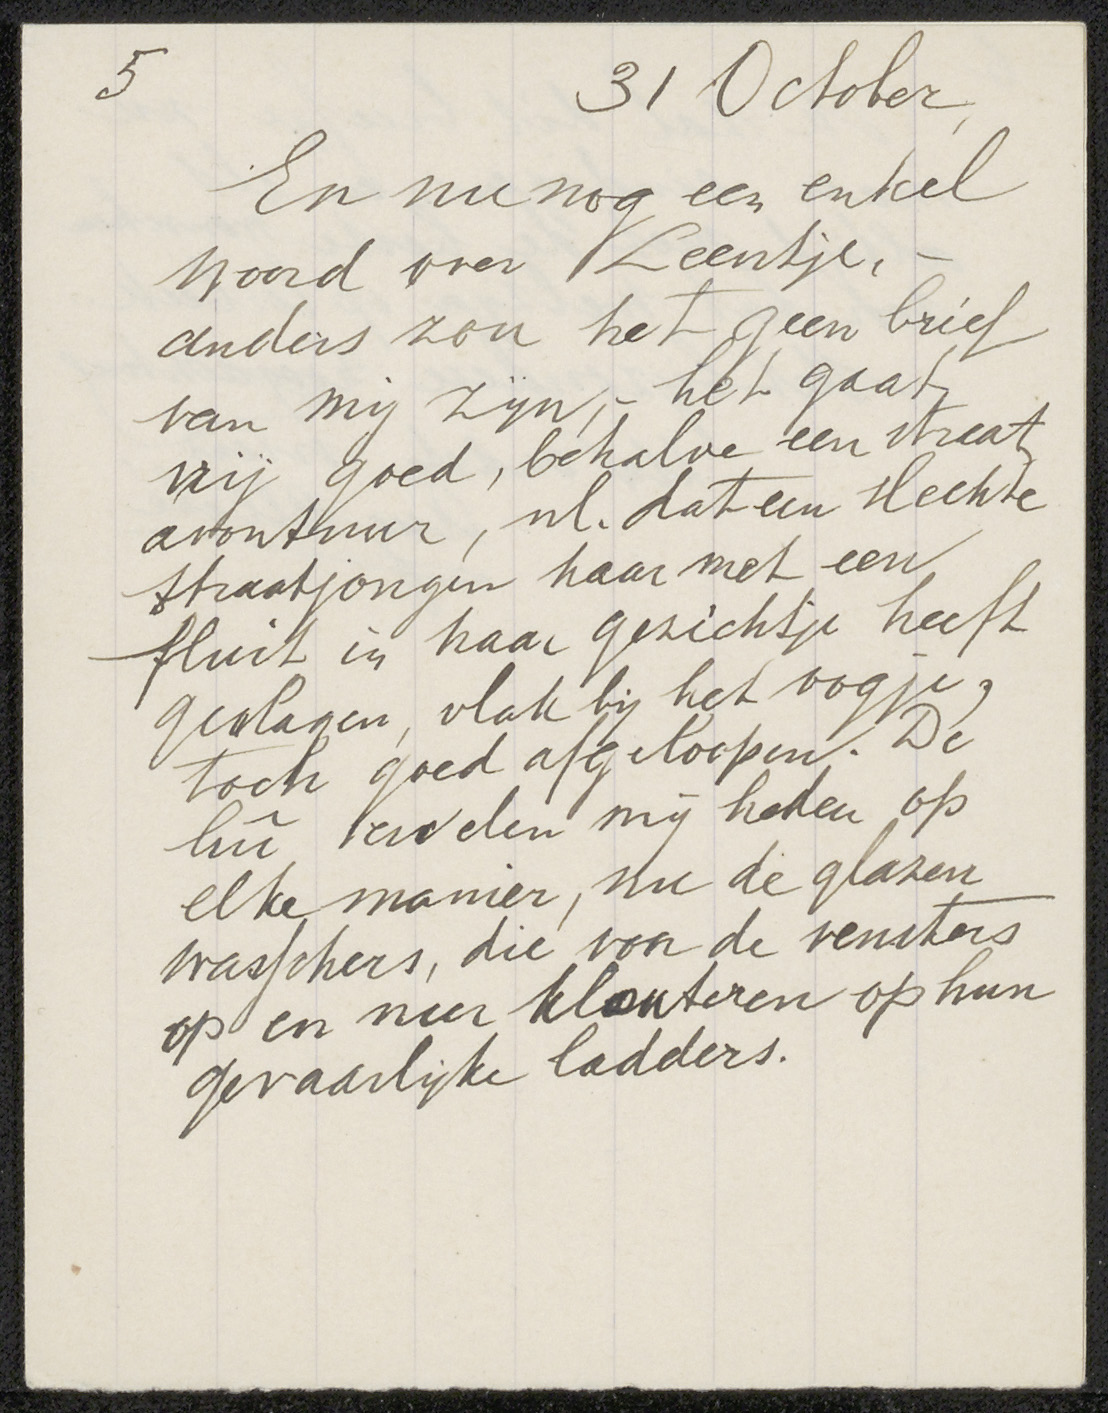 5 31 October,
En nu nog een enkel
woord over Leentje, -
anders zou het geen brief
van mij zijn, - het gaat
vrij goed, behalve een straat
avontuur, nl. dat een slechte
straatjongen haar met een
fluit in haar gezichtje heeft
geslagen, vlak bij het oogje,
toch goed afgeloopen. De
mij heden op
elke manier, nu de glazen
wasschers, die voor de vensters
op en neer klouteren op hun
gevaarlijke ladders.